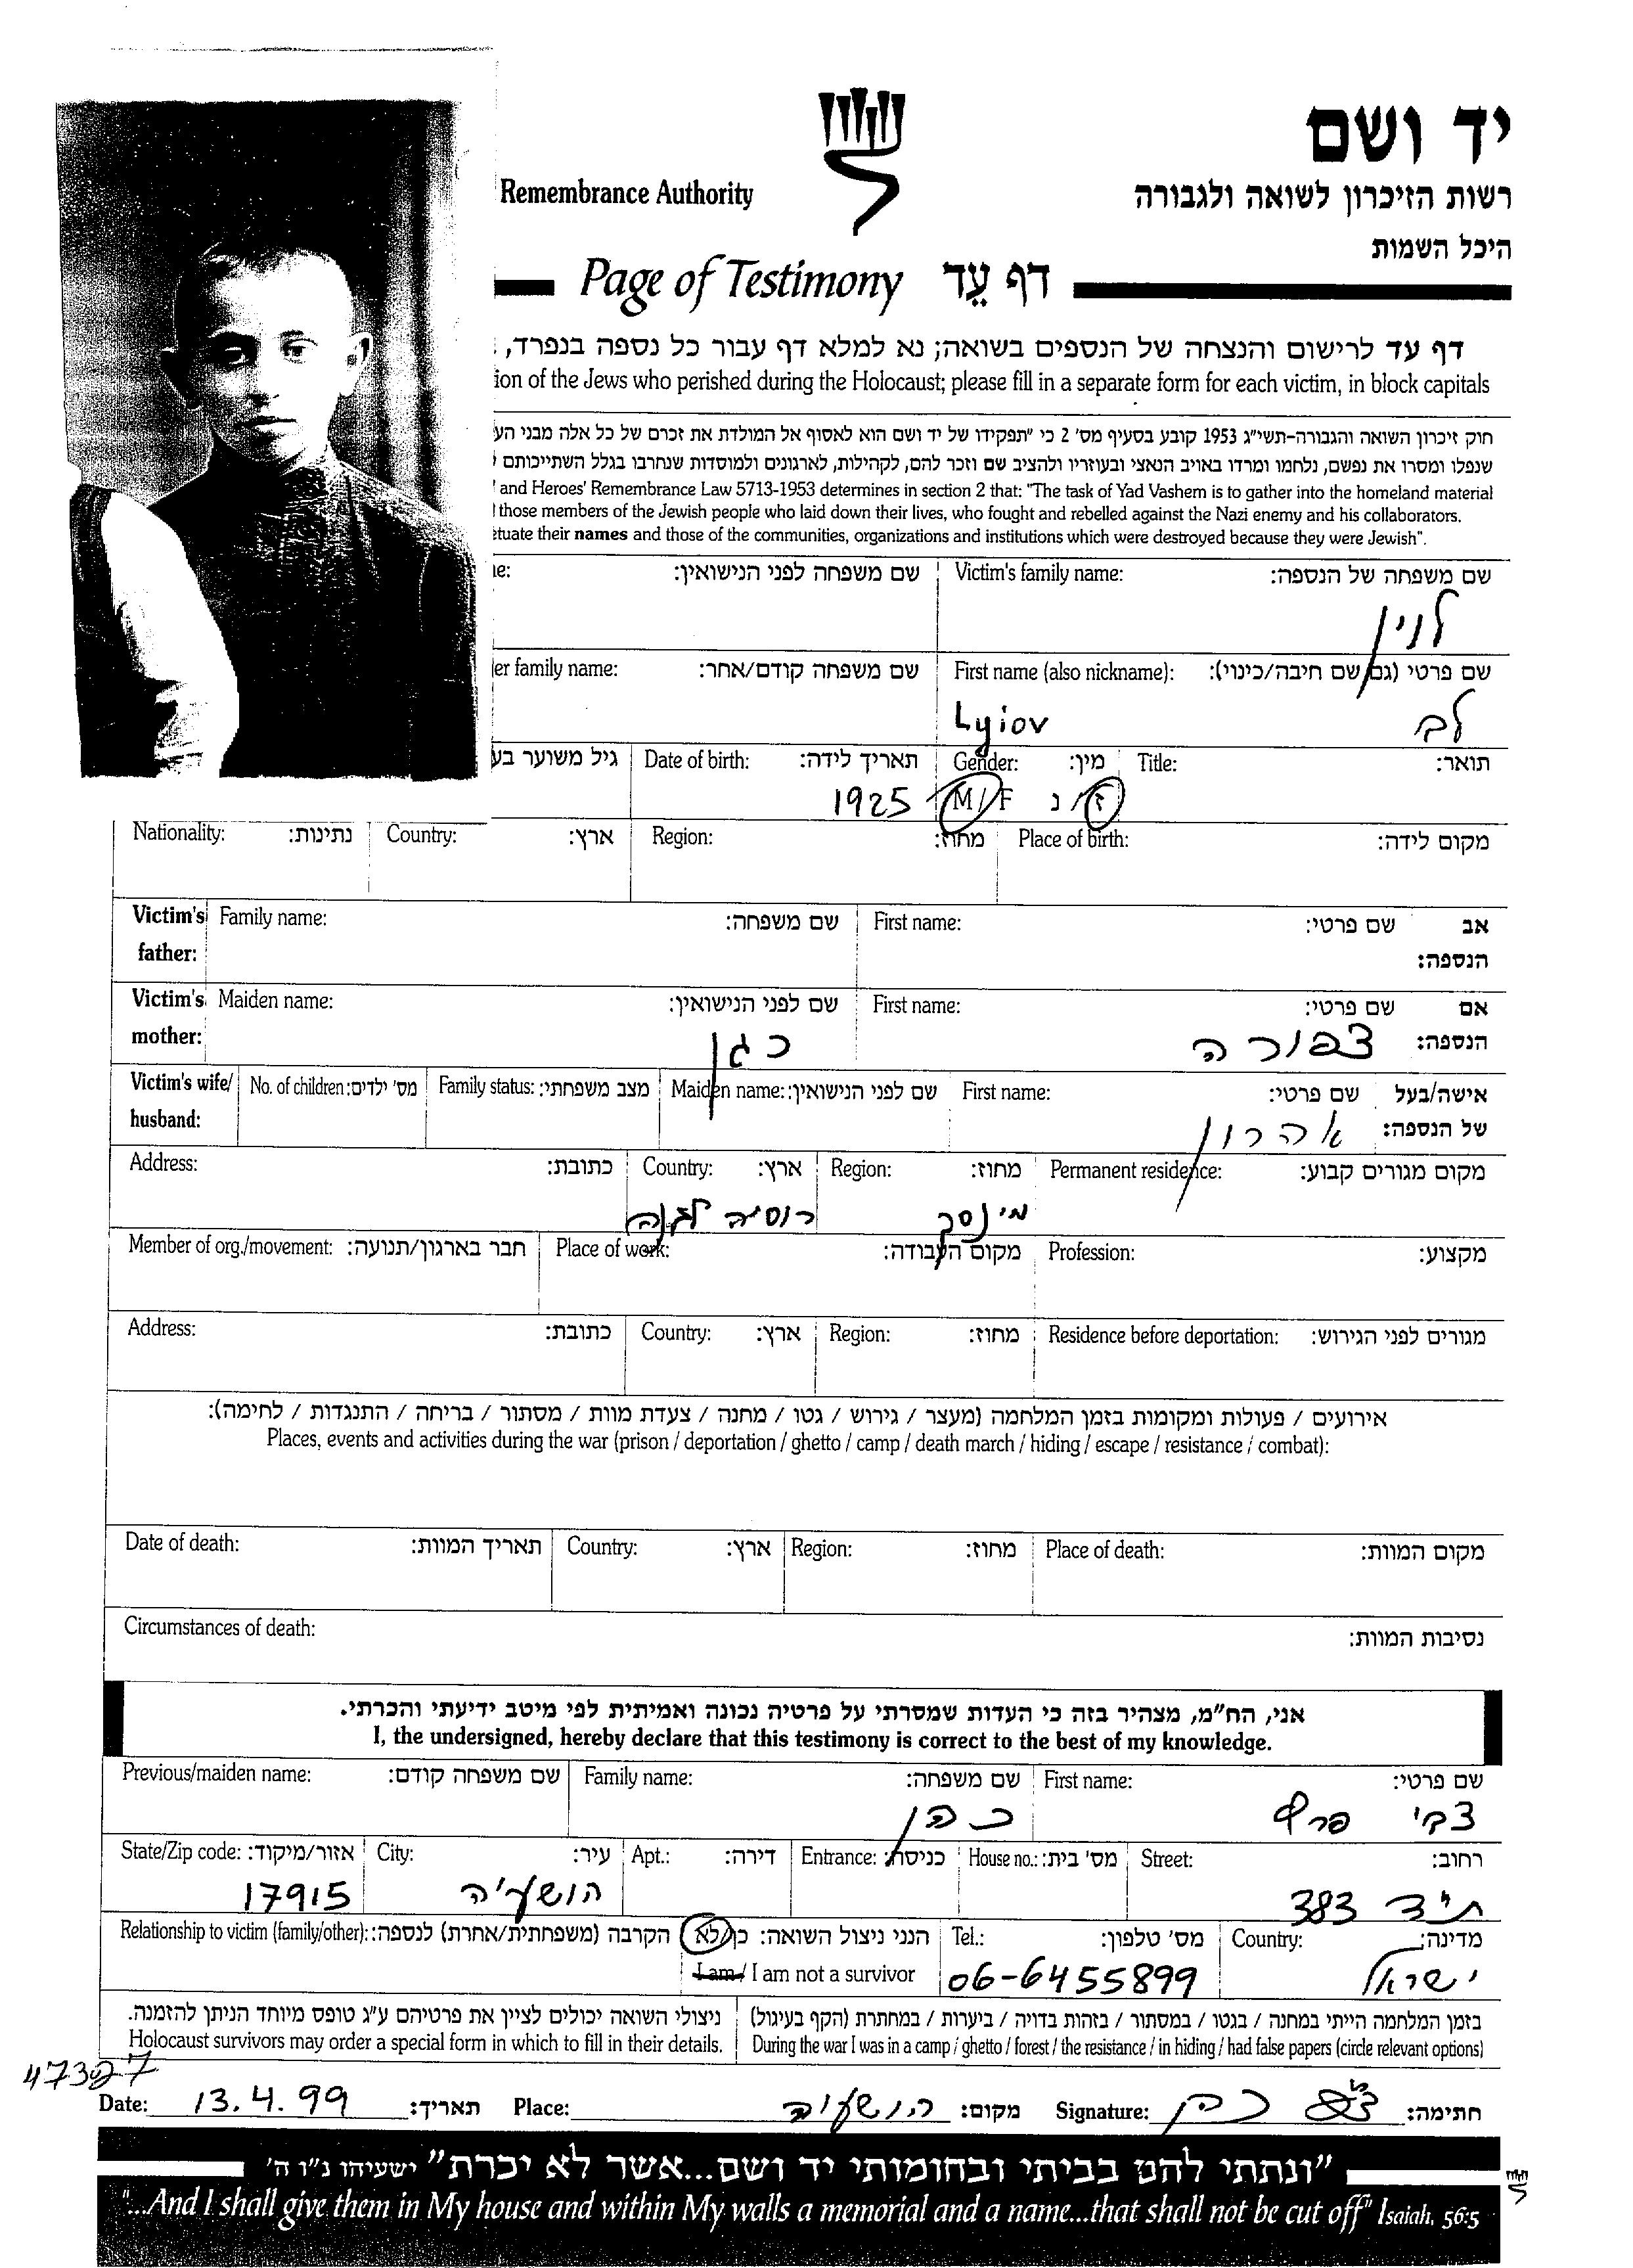 יד ושם
רשות הזיכרון לשואה ולגבורה
Remembrance Authority
היכל השמות
Page of Testimony דף עֵד
דף עד לרישום והנצחה של הנספים בשואה; נא למלא דף עבור כל נספה בנפרד,
ion of the Jews who perished during the Holocaust; please fill in a separate form for each victim, in block capitals
חוק זיכרון השואה והגבורה-תשי"ג 1953 קובע בסעיף מס' 2 כי "תפקידו של יד ושם הוא לאסוף אל המולדת את זכרם של כל אלה מבני הע
שנפלו ומסרו את נפשם, נלחמו ומרדו באויב הנאצי ובעוזריו ולהציב שם וזכר להם, לקהילות, לארגונים ולמוסדות שנחרבו בגלל השתייכותם
and Heroes' Remembrance Law 5713-1953 determines in section 2 that: "The task of Yad Vashem is to gather into the homeland material
those members of the Jewish people who laid down their lives, who fought and rebelled against the Nazi enemy and his collaborators.
etuate their names and those of the communities, organizations and institutions which were destroyed because they were Jewish".
שם משפחה של הנספה: Victim's family name:
לוין
שם משפחה לפני הנישואין: ne:
שם פרטי (גם שם חיבה/כינוי): First name (also nickname):
לב Lyiov
שם משפחה קודם/אחר: er family name:
תואר: Title:
מין: Gender:
ז/נ M/F
תאריך לידה: Date of birth:
1925
גיל משוער בע
מקום לידה: Place of birth:
מחוז: Region:
ארץ: Country:
נתינות: Nationality:
אב הנספה: Victim's father:
שם פרטי: First name:
שם משפחה: Family name:
אם הנספה: Victim's mother:
שם פרטי: First name:
צפורה
שם לפני הנישואין: Maiden name:
כגן
אישה/בעל של הנספה: Victim's wife/ husband:
שם פרטי: First name:
אהרון
שם לפני הנישואין: Maiden name:
מצב משפחתי: Family status:
מס' ילדים: No. of children:
מקום מגורים קבוע: Permanent residence:
מחוז: Region:
מינסק
ארץ: Country:
רוסיה לבנה
כתובת: Address:
מקצוע: Profession:
מקום העבודה: Place of work:
חבר בארגון/תנועה: Member of org./movement:
מגורים לפני הגירוש: Residence before deportation:
מחוז: Region:
ארץ: Country:
כתובת: Address:
אירועים / פעולות ומקומות בזמן המלחמה (מעצר / גירוש / גטו / מחנה / צעדת מוות / מסתור / בריחה / התנגדות / לחימה):
Places, events and activities during the war (prison / deportation / ghetto / camp / death march / hiding / escape / resistance / combat):
מקום המוות: Place of death:
מחוז: Region:
ארץ: Country:
תאריך המוות: Date of death:
נסיבות המוות: Circumstances of death:
אני, הח"מ, מצהיר בזה כי העדות שמסרתי על פרטיה נכונה ואמיתית לפי מיטב ידיעתי והכרתי.
I, the undersigned, hereby declare that this testimony is correct to the best of my knowledge.
שם פרטי: First name:
צבי
שם משפחה: Family name:
כהן
שם משפחה קודם: Previous/maiden name:
רחוב: Street:
ת"ד 383
מס' בית: House no.:
כניסה: Entrance:
דירה: Apt.:
עיר: City:
הושעיה
אזור/מיקוד: State/Zip code:
17915
מדינה: Country:
ישראל
מס' טלפון: Tel.:
06-6455899
הנני ניצול השואה: כן/לא
I am / I am not a survivor
הקרבה (משפחתית/אחרת) לנספה: Relationship to victim (family/other):
בזמן המלחמה הייתי במחנה / בגטו / במסתור / בזהות בדויה / ביערות / במחתרת (הקף בעיגול)
During the war I was in a camp / ghetto / forest / the resistance / in hiding / had false papers (circle relevant options)
ניצולי השואה יכולים לציין את פרטיהם ע"ג טופס מיוחד הניתן להזמנה.
Holocaust survivors may order a special form in which to fill in their details.
חתימה: Signature: כהן
מקום: Place: הושעיה
תאריך: Date: 13.4.99
"ונתתי להם בביתי ובחומותי יד ושם...אשר לא יכרת" ישעיהו נ"ו ה'
"...And I shall give them in My house and within My walls a memorial and a name...that shall not be cut off" Isaiah, 56:5